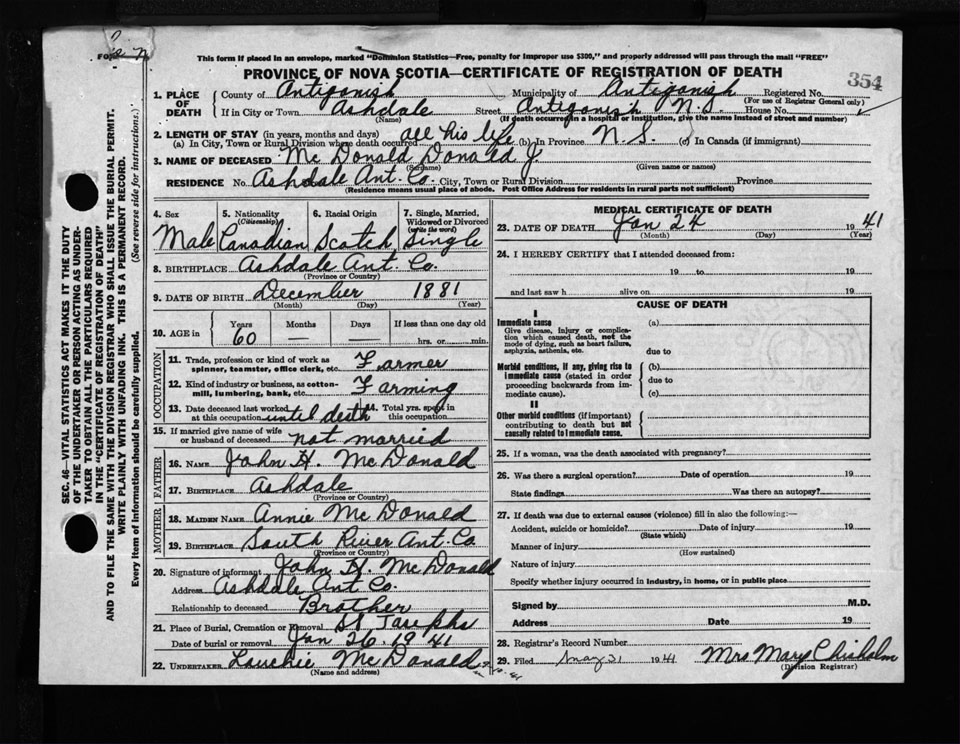 This form if placed in an envelope, marked "Dominion Statistics—Free, penalty for improper use $300," and properly addressed will pass through the mail "FREE"
PROVINCE OF NOVA SCOTIA—CERTIFICATE OF REGISTRATION OF DEATH
354
1. PLACE OF DEATH County of Antigonish Municipality of Antigonish Registered No.
(For use of Registrar General only)
If in City or Town Ashdale Street Antigonish N.S. House No.
(Name) (If death occurred in a hospital or institution, give the name instead of street and number)
2. LENGTH OF STAY (in years, months and days)
(a) In City, Town or Rural Division where death occurred all his life (b) In Province N.S. (c) In Canada (if immigrant)
3. NAME OF DECEASED Mc Donald Donald J
(Surname) (Given name or names)
RESIDENCE No. Ashdale Ant. Co. City, Town or Rural Division Province
(Residence means usual place of abode. Post Office Address for residents in rural parts not sufficient)
SEC. 46—VITAL STATISTICS ACT MAKES IT THE DUTY
OF THE UNDERTAKER OR PERSON ACTING AS UNDER-
TAKER TO OBTAIN ALL THE PARTICULARS REQUIRED
IN THE "CERTIFICATE OF REGISTRATION OF DEATH"
AND TO FILE THE SAME WITH THE DIVISION REGISTRAR WHO SHALL ISSUE THE BURIAL PERMIT.
WRITE PLAINLY WITH UNFADING INK. THIS IS A PERMANENT RECORD.
Every item of information should be carefully supplied. (See reverse side for instructions.)
4. Sex 5. Nationality (Citizenship) 6. Racial Origin 7. Single, Married, Widowed or Divorced (write the word)
Male Canadian Scotch Single
8. BIRTHPLACE Ashdale Ant. Co.
(Province or Country)
9. DATE OF BIRTH December 1881
(Month) (Day) (Year)
10. AGE in Years Months Days If less than one day old
60 — — hrs. or min.
OCCUPATION
11. Trade, profession or kind of work as spinner, teamster, office clerk, etc. Farmer
12. Kind of industry or business, as cotton-mill, lumbering, bank, etc. Farming
13. Date deceased last worked at this occupation until death 14. Total yrs. spent in this occupation
15. If married give name of wife or husband of deceased not married
FATHER
16. NAME John H. McDonald
17. BIRTHPLACE Ashdale
(Province or Country)
MOTHER
18. MAIDEN NAME Annie McDonald
19. BIRTHPLACE South River Ant. Co
(Province or Country)
20. Signature of informant John H. McDonald
Address Ashdale Ant Co.
Relationship to deceased Brother
21. Place of Burial, Cremation or Removal St Josephs
Date of burial or removal Jan 26. 1941
22. UNDERTAKER Lauchie McDonald
(Name and address)
MEDICAL CERTIFICATE OF DEATH
23. DATE OF DEATH Jan 24 1941
(Month) (Day) (Year)
24. I HEREBY CERTIFY that I attended deceased from:
19 to 19
and last saw h alive on 19
CAUSE OF DEATH
I
Immediate cause (a)
Give disease, injury or complica-
tion which caused death, not the
mode of dying, such as heart failure,
asphyxia, asthenia, etc. due to
Morbid conditions, if any, giving rise to (b)
immediate cause (stated in order due to
proceeding backwards from im-
mediate cause). (c)
II
Other morbid conditions (if important)
contributing to death but not
causally related to immediate cause.
25. If a woman, was the death associated with pregnancy?
26. Was there a surgical operation? Date of operation 19
State findings Was there an autopsy?
27. If death was due to external causes (violence) fill in also the following:—
Accident, suicide or homicide? Date of injury 19
(State which)
Manner of injury
(How sustained)
Nature of injury
Specify whether injury occurred in industry, in home, or in public place
Signed by M.D.
Address Date 19
28. Registrar's Record Number
29. Filed May 31 1941 Mrs Mary Chisholm
(Division Registrar)